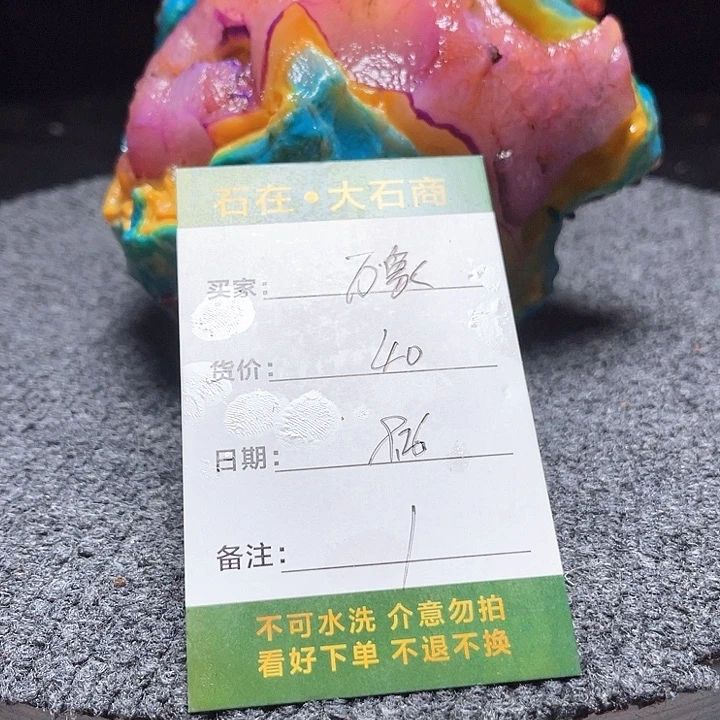 石在·大石商
买家：万象
货价：40
日期：8.26
备注：/
不可水洗 介意勿拍
看好下单 不退不换